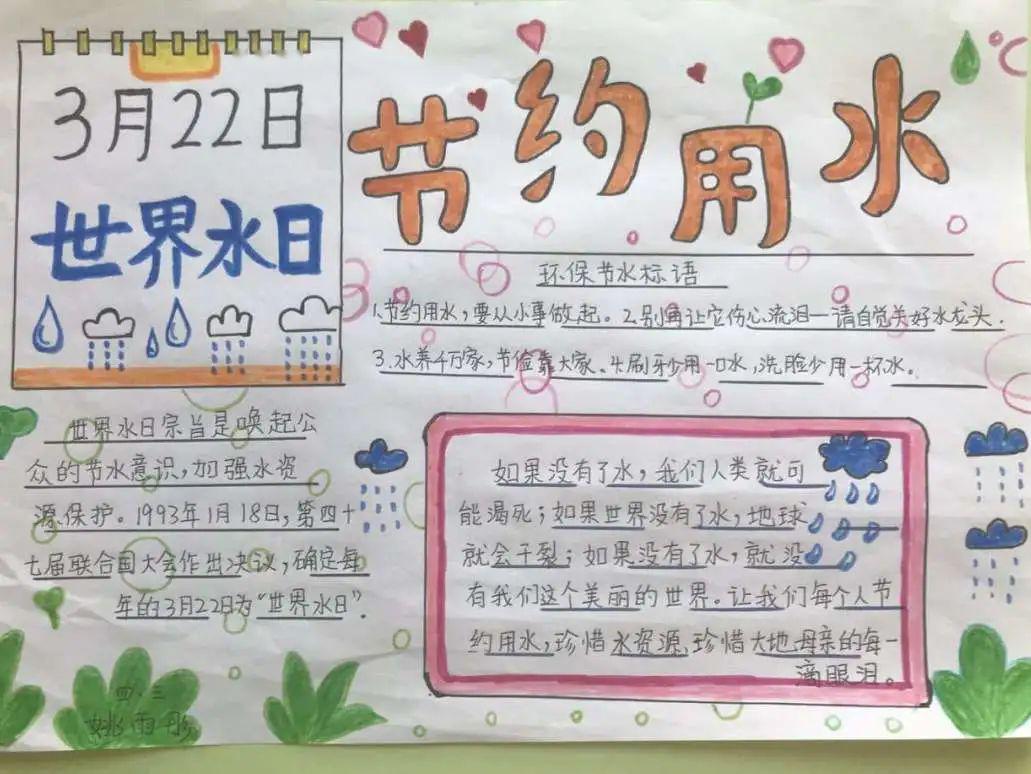 3月22日
世界水日
节约用水
环保节水标语
1.节约用水,要从小事做起。2.别再让它伤心流泪—请自觉关好水龙头.
3.水养千万家,节俭靠大家。4.刷牙少用一口水,洗脸少用一杯水。
世界水日宗旨是唤起公
众的节水意识,加强水资
源保护。1993年1月18日,第四十
七届联合国大会作出决议,确定每
年的3月22日为“世界水日”.
如果没有了水,我们人类就可
能渴死;如果世界没有了水,地球
就会干裂;如果没有了水,就没
有我们这个美丽的世界。让我们每个人节
约用水,珍惜水资源,珍惜大地母亲的每一
滴眼泪。
四.三
姚雨彤